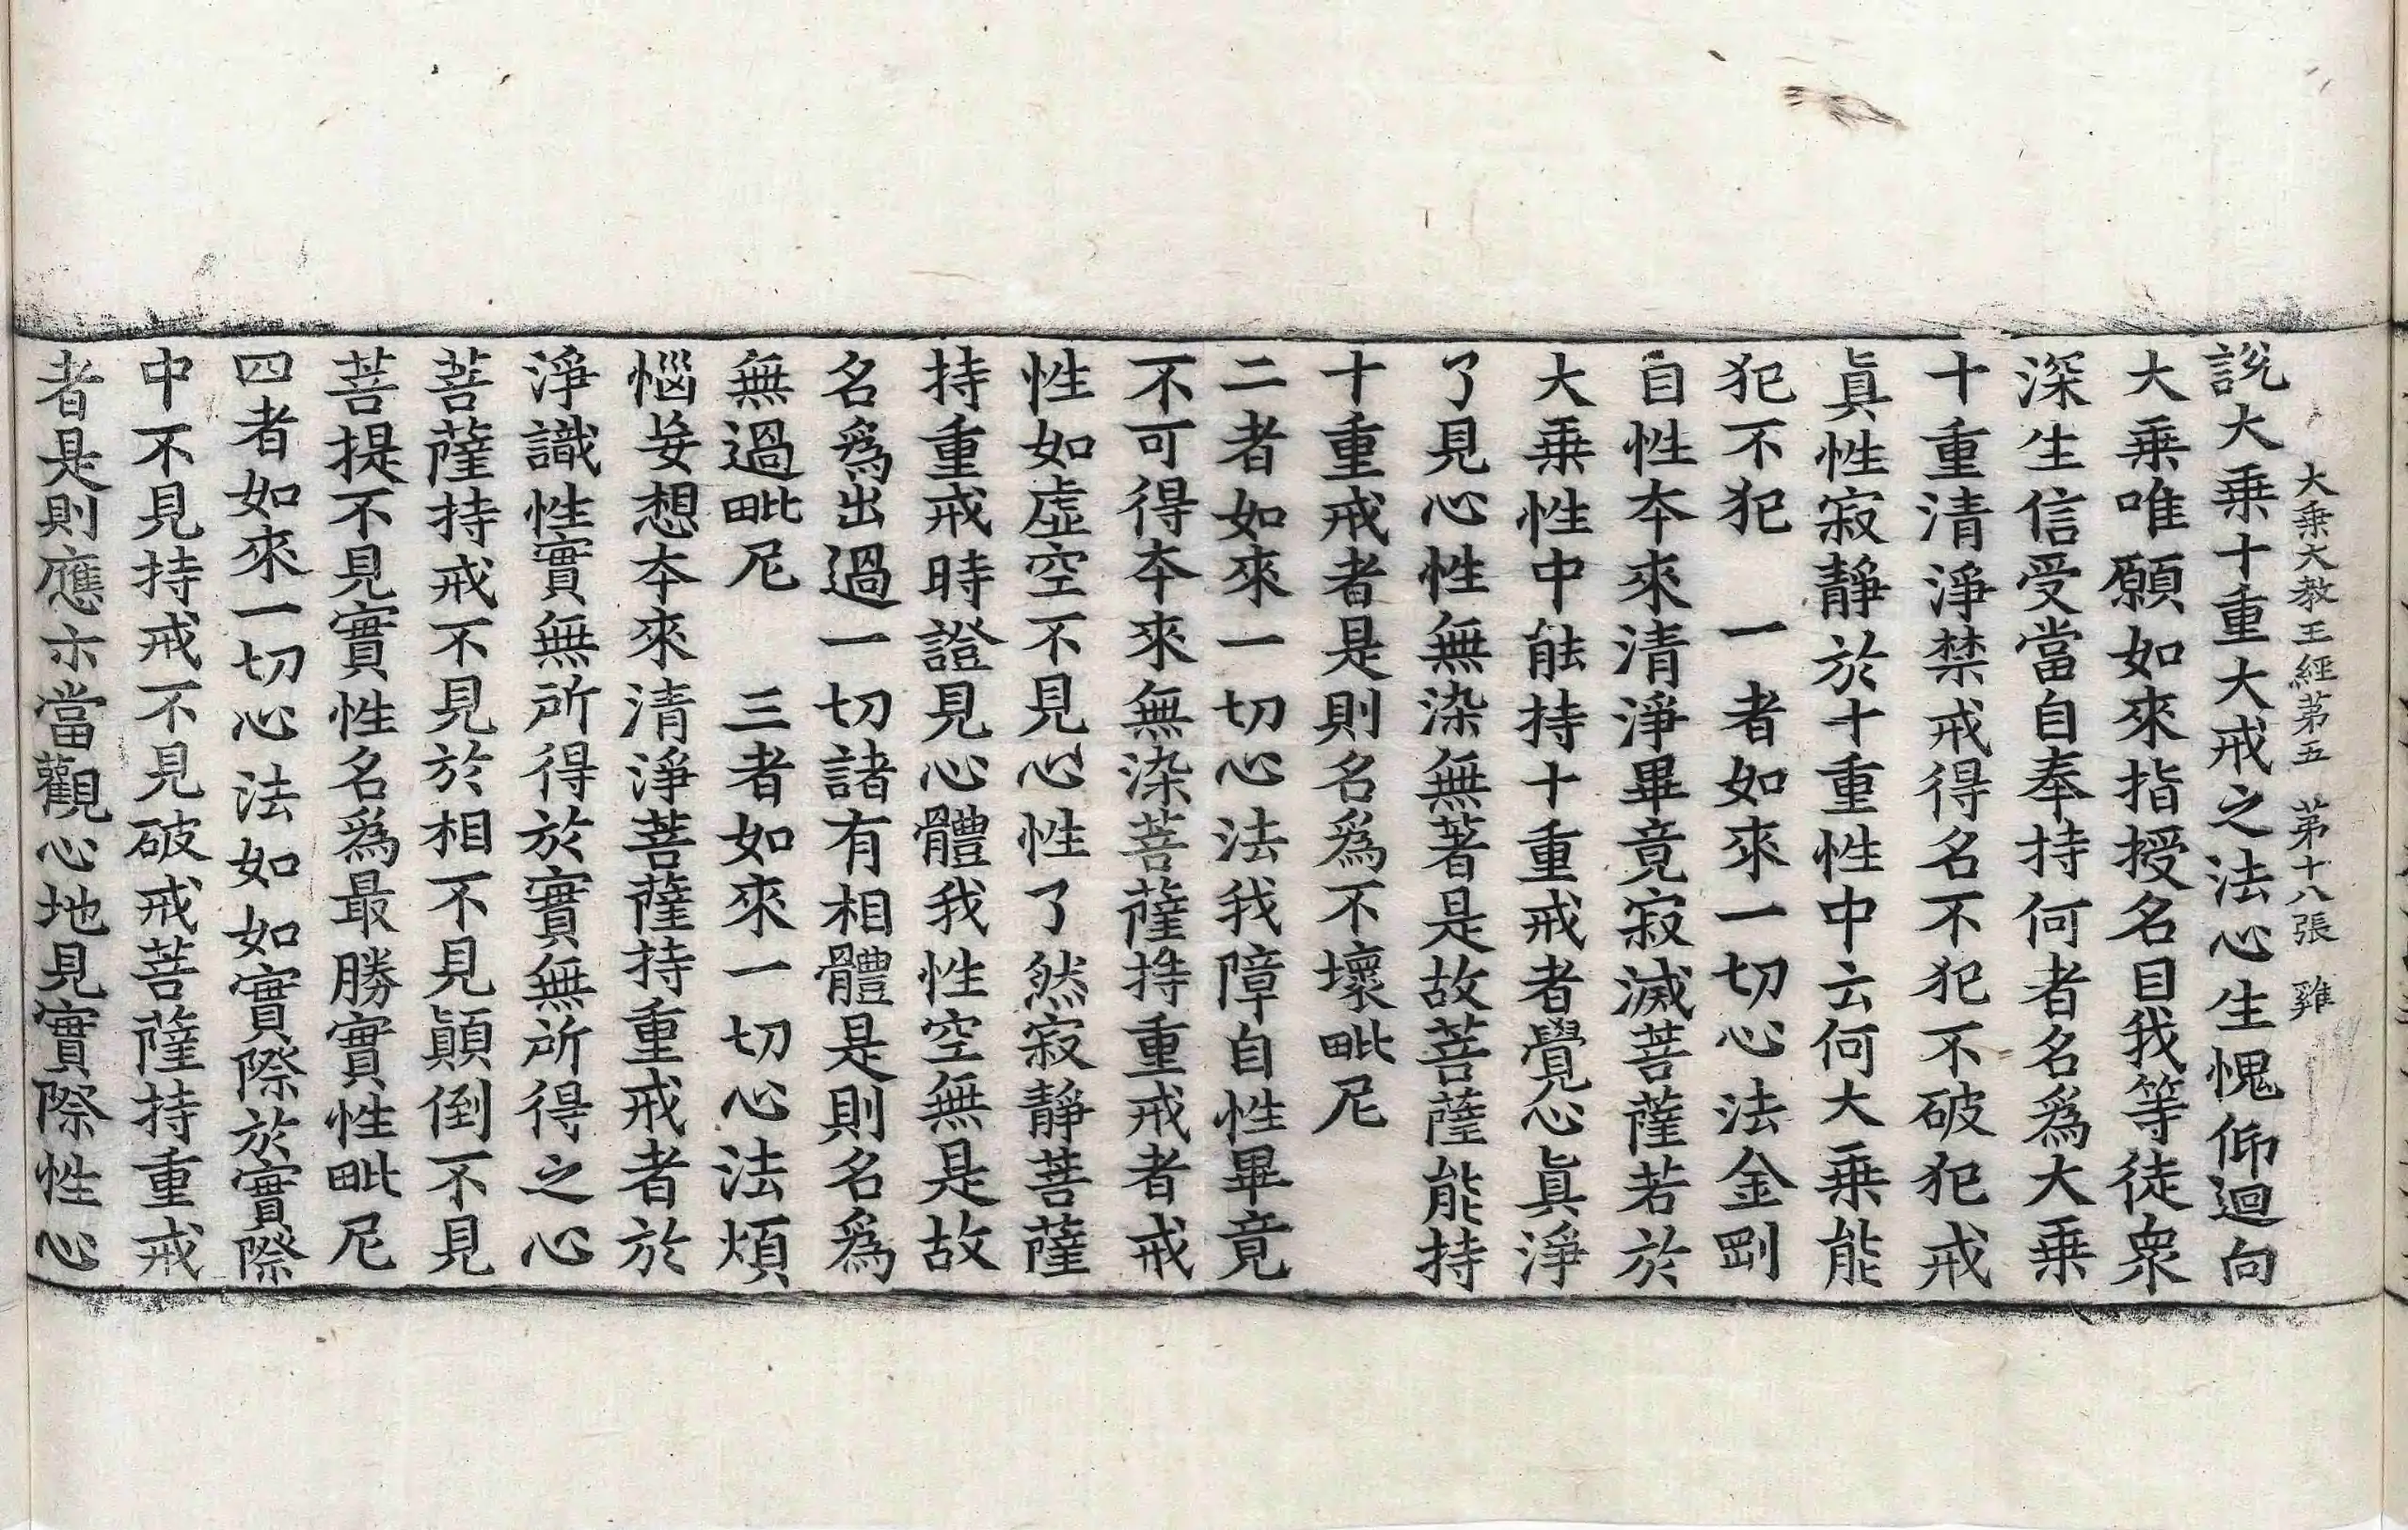 大乘大教王經第五　第十八張　雞
說大乘十重大戒之法心生愧仰迴向
大乘唯願如來指授名目我等徒衆
深生信受當自奉持何者名爲大乘
十重清淨禁戒得名不犯不破犯戒
眞性寂靜於十重性中云何大乘能
犯不犯　一者如來一切心法金剛
自性本來清淨畢竟寂滅菩薩若於
大乘性中能持十重戒者覺心眞淨
了見心性無染無著是故菩薩能持
十重戒者是則名爲不壞毗尼
二者如來一切心法我障自性畢竟
不可得本來無染菩薩持重戒者戒
性如虛空不見心性了然寂靜菩薩
持重戒時證見心體我性空無是故
名爲出過一切諸有相體是則名爲
無過毗尼　三者如來一切心法煩
惱妄想本來清淨菩薩持重戒者於
淨識性實無所得於實無所得之心
菩薩持戒不見於相不見顚倒不見
菩提不見實性名爲最勝實性毗尼
四者如來一切心法如如實際於實際
中不見持戒不見破戒菩薩持重戒
者是則應示當觀心地見實際性心